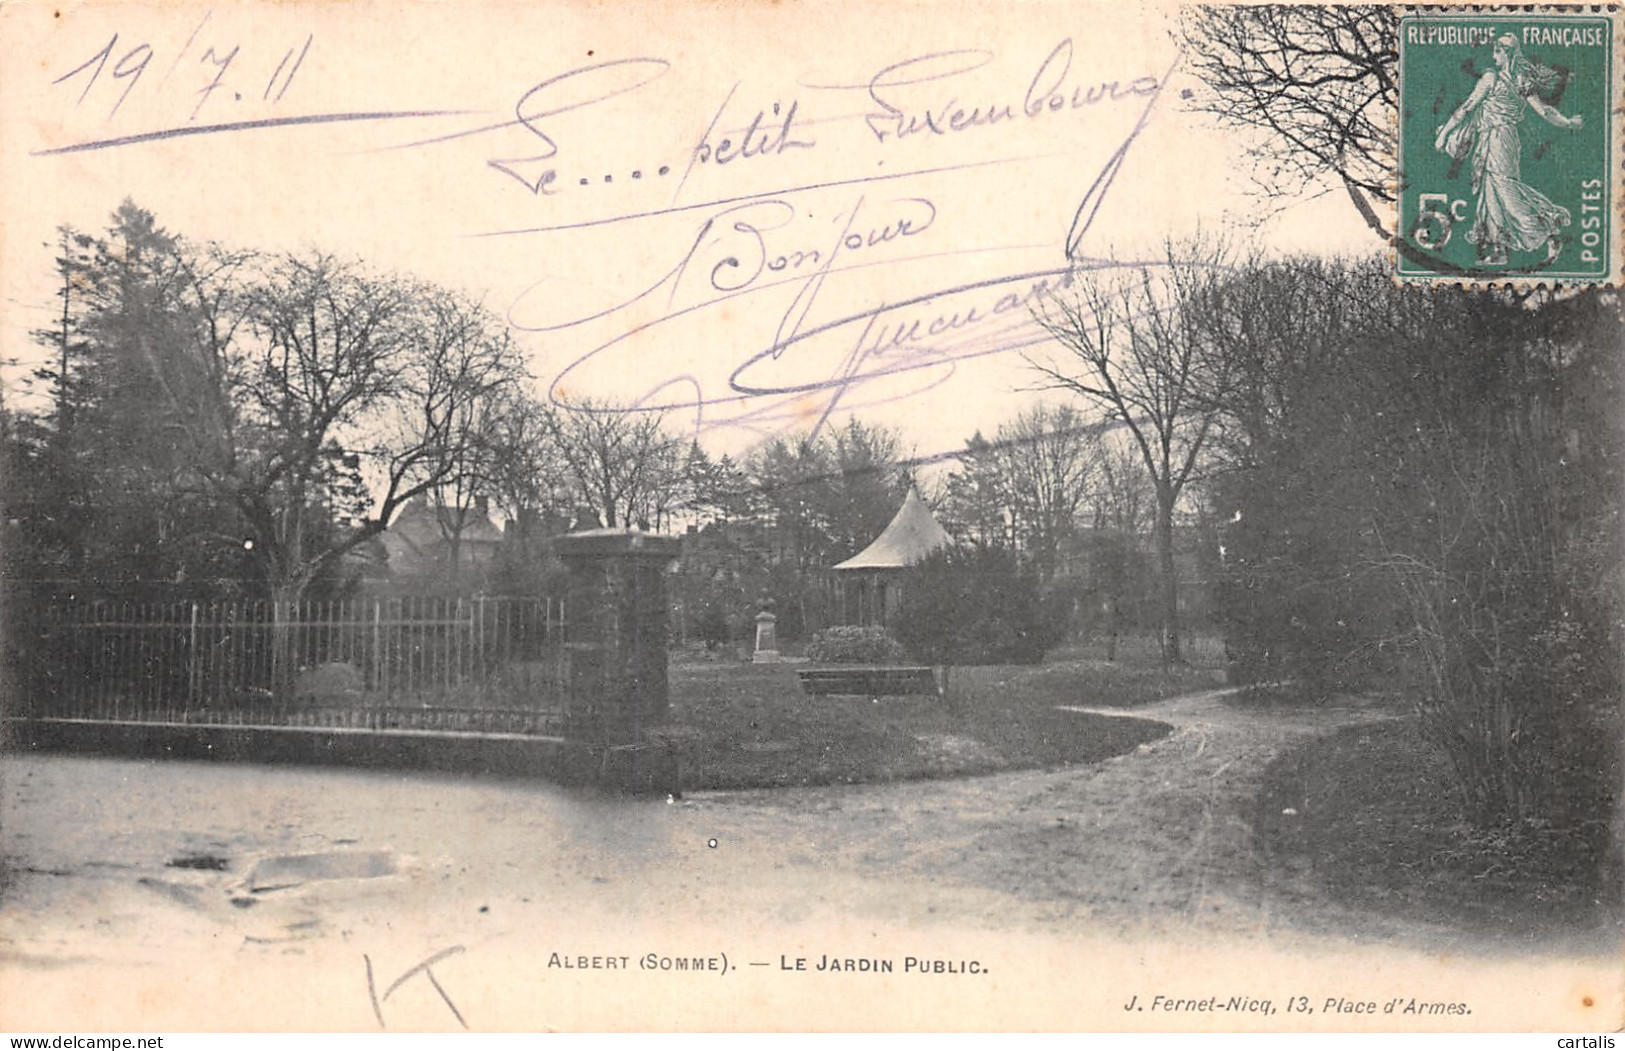 19/7.11
Le.... petit Luxembourg.
Bonjour
RÉPUBLIQUE FRANÇAISE
5c
POSTES
ALBERT (SOMME). — LE JARDIN PUBLIC.
J. Fernet-Nicq, 13, Place d'Armes.
K
cartalis